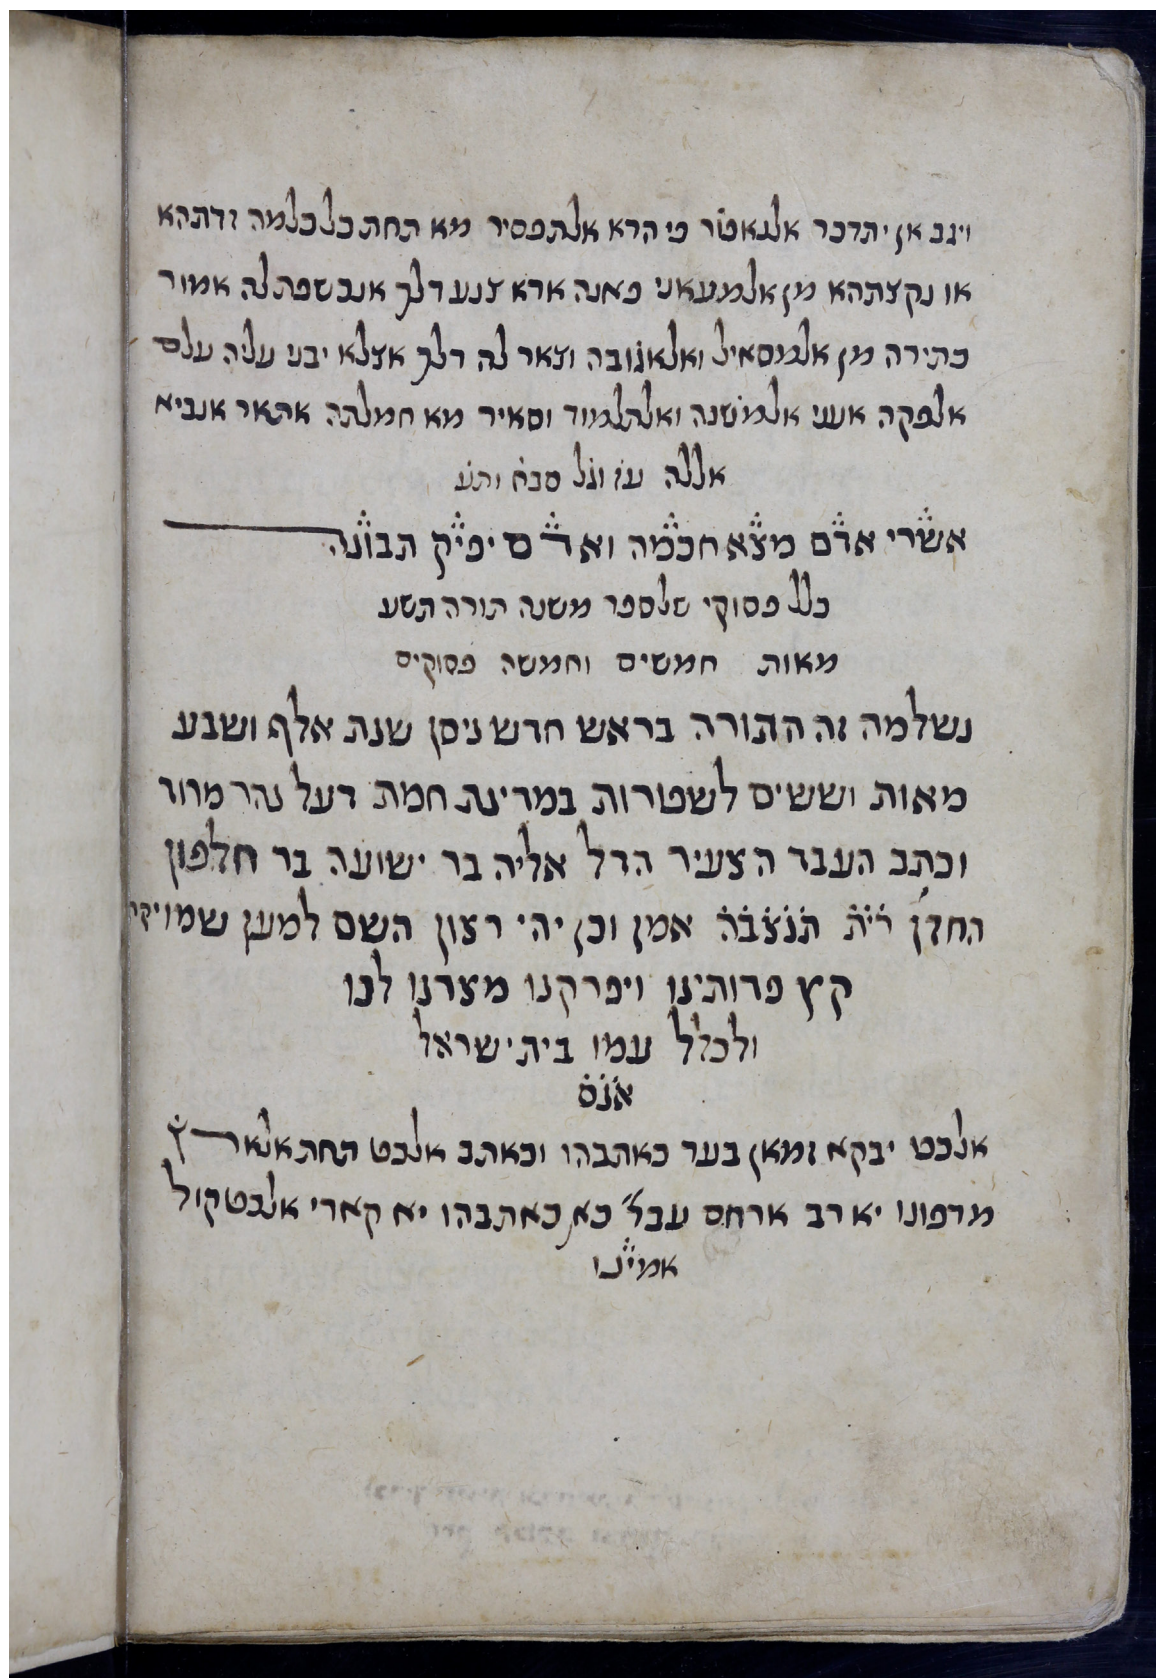 ויגב אן יתדבר אלנאטׄר פי הדא אלתפסיר מא תחת כל כלמה זדתהא
או נקצתהא מן אלמעאני פאנה אדא צנע דלך אנכשפת לה אמור
כתירה מן אלמסאיל ואלאגׄובה וצאר לה דלך אצלא יבני עליה עלם
אלפקה אעני אלמשנה ואלתלמוד וסאיר מא חמלתה אתאר אנביא
אללה עז וגׄל סבח ותע
אשרי אדם מצא חכמה ואדם יפיק תבונה
כלל פסוקי שלספר משנה תורה תשע
מאות חמשים וחמשה פסוקים
נשלמה זה התורה בראש חדש ניסן שנת אלף ושבע
מאות וששים לשטרות במדינת חמת דעל נהר מרוד
וכתב העבד הצעיר הדל אליה בר ישועה בר חלפון
החזן ר֗י֗ת֗ ת֗נ֗צ֗ב֗ה֗ אמן וכן יהי רצון השם למען שמו
קץ פדותינו ויפרקנו מצרנו לנו
ולכלל עמו בית ישראל
א֗נ֗ס֗
אלכט יבקא זמאן בעד כאתבהו וכאתב אלכט תחת אלארץׄ
מדפונו יא רב ארחם עבד כאן כאתבהו יא קארי אלכט קול
אמינו